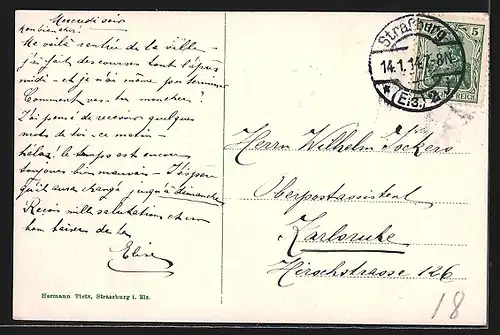 Mercredi soir
Mon bien cher!
Me voilà rentrée de la ville -
j'ai fait des courses tout l'après
midi - et je n'ai même pas terminer
Comment vas tu mon cher?
J'ai pensé de recevoir quelques
mots de toi - ce matin -
hélas! le temps est encore
toujours bien mauvais - J'espère
qu'il aura changé jusqu'à dimanche
Reçois mille salutations et un
bon baiser de ta
Elise
Hermann Tietz, Strassburg i. Els.
Strassburg
14.1.14. 7-8N.
* (Els.) 2
5
REICH
Herrn Wilhelm
Oberpostassistent
Karlsruhe
Hirschstrasse 126
18